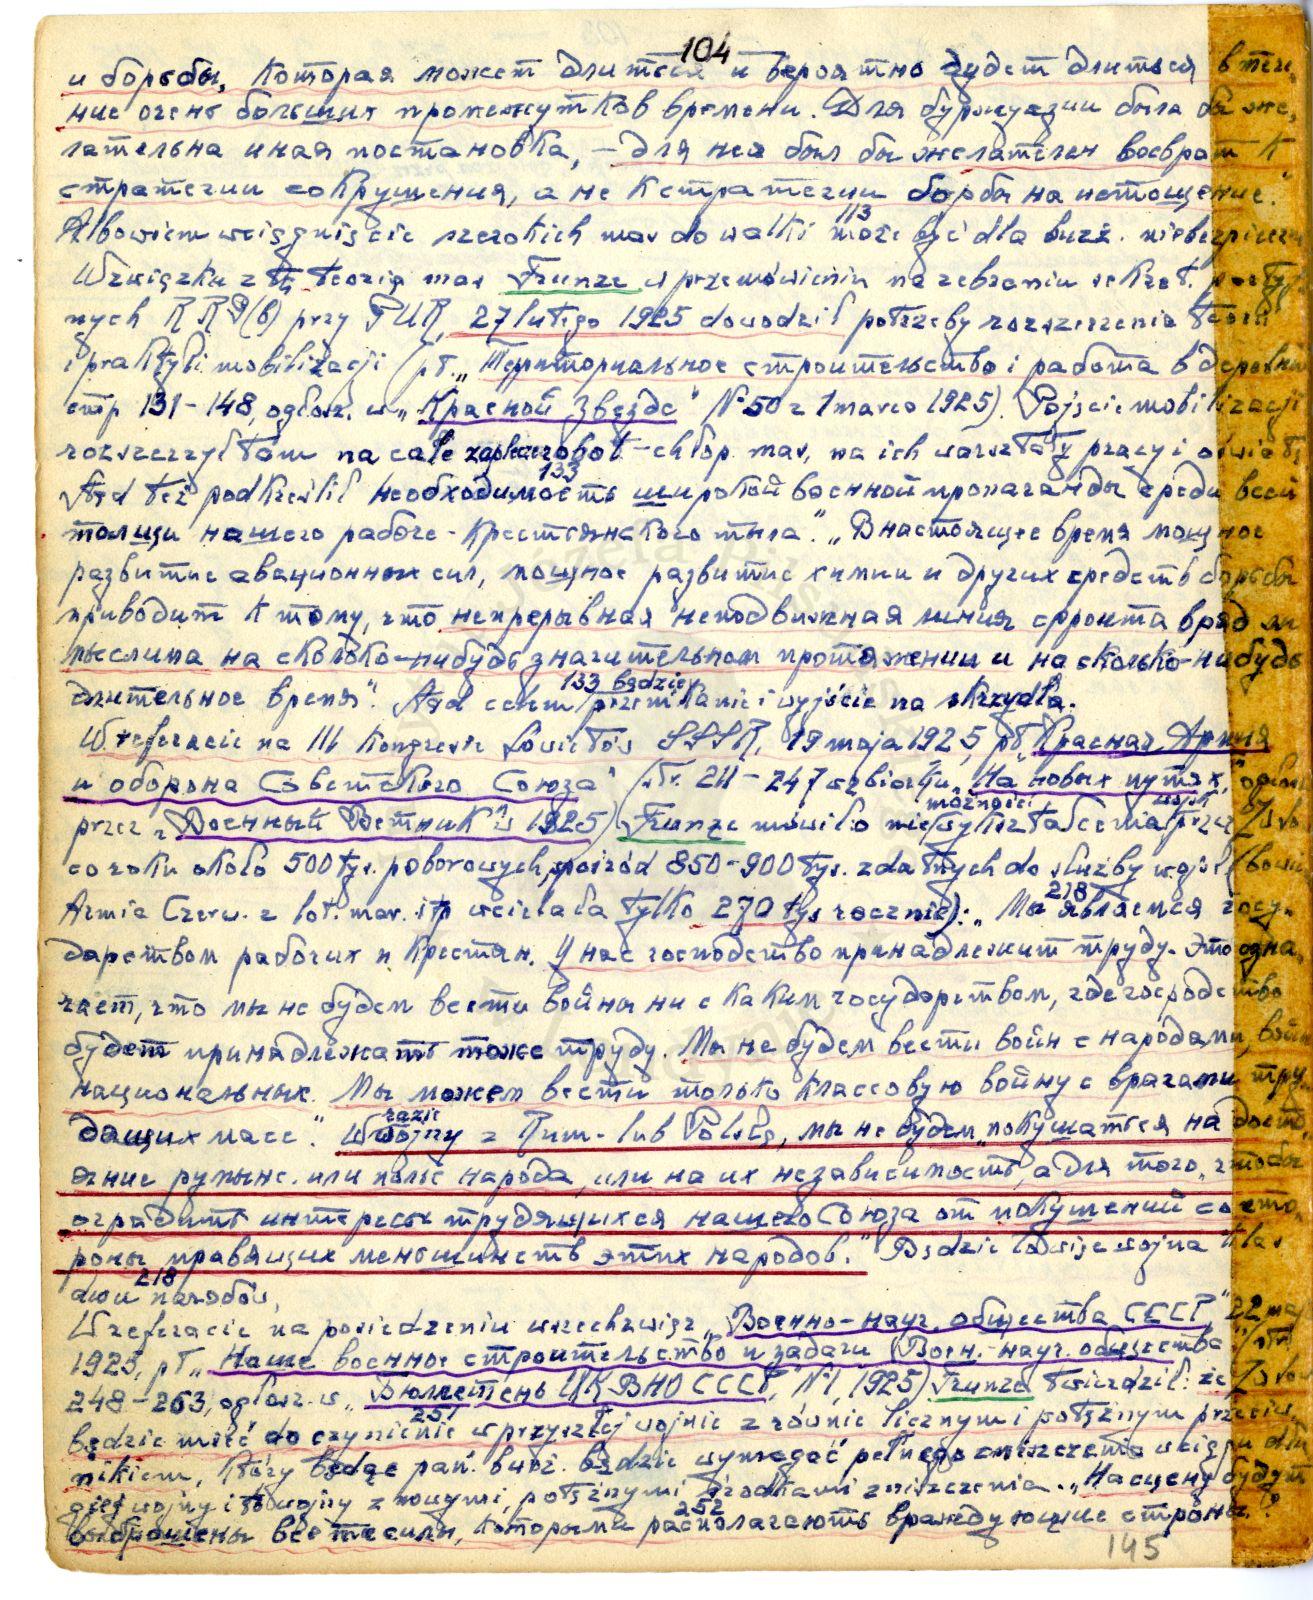 104
и борьбы, которая может длиться и вероятно будет длиться в тече-
ние очень больших промежутков времени. Для буржуазии была бы же-
лательна иная постановка, – для нее был бы желателен возврат к
стратегии сокрушения, а не к стратегии борьбы на истощение."
Albowiem wciągnięcie szerokich mas do walki może być dla burż. niebezpieczn
113
W związku z tą teorią mas Frunze w przemówieniu na zebraniu sekret. party-
nych RKP(b) przy PUR, 27 lutego 1925 dowodził potrzeby rozszerzenia teorii
i praktyki mobilizacji (pt. „Территориальное строительство и работа в деревне
стр 131-148, ogłosz. w „Красной Звезде" № 50 z 1 marca 1925). Pojęcie mobilizacji
rozszerzył tam na całe zaplecze robot-chłop. mas, na ich warsztaty pracy i oświaty
133
Stąd też podkreślił необходимость широкой военной пропаганды среди всей
толщи нашего рабоче-крестьянского тыла." „В настоящее время мощное
развитие авационных сил, мощное развитие химии и других средств борьбы
приводит к тому, что непрерывная неподвижная линия фронта вряд ли
мыслима на сколько-нибудь значительном протяжении и на сколько-нибудь
длительное время". Stąd celem będzie przenikanie i wyjście na skrzydła.
133
W referacie na III Kongresie Sowietów SSSR, 19 maja 1925, pt „Красная Армия
и оборона Советского Союза" (str. 211-247 w zbiorku „На новых путях", ogłosz
przez „Военный Вестник" w 1925) Frunze mówił o niemożności wykształcenia przez wojsk
co roku około 500 tys. poborowych, spośród 850-900 tys. zdatnych do służby wojsk (bowiem
Armia Czerw. z lot. mar. itp wcielała tylko 270 tys rocznie): „Мы являемся госу-
218
дарством рабочих и крестьян. У нас господство принадлежит труду. Это озна-
чает, что мы не будем вести войны ни с каким государством, где господство
будет принадлежать тоже труду. Мы не будем вести войн с народами, войн
национальных. Мы можем вести только классовую войну с врагами тру-
дящихся масс". W razie wojny z Rum. lub Polską, мы не будем „покушаться на досто-
яние румынс. или польс народа, или на их независимость, а для того, чтобы
оградить интересы трудящихся нашего Союза от покушений со сто-
роны правящих меньшинств этих народов." Będzie to więc wojna klas
a nie narodów.
218
W referacie na posiedzeniu wszechzwiąz. „Военно-науч. общества СССР" 22 maja
1925, pt „Наше военное строительство и задачи Воен.-науч. общества" (str.
248-263, ogłosz. w „Бюллетень ЦК ВНО СССР", №1, 1925) Frunze twierdził: że
będzie mieć do czynienia w przyszłej wojnie z równie licznym i potężnym przeciw-
251
nikiem, który będąc pań. burż. będzie wymagać pełnego zniszczenia w ciągu dłu-
giej wojny i to wojny z nowymi, potężnymi środkami zniszczenia. „На сцену будут
выброшены все те силы, которыми располагают враждующие стороны."
252
145